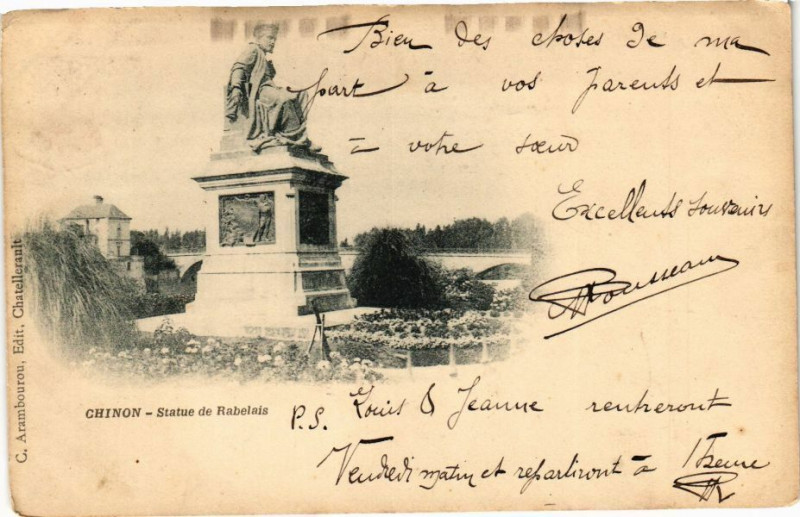 Bien des choses de ma
part à vos parents et
à votre sœur
Excellents souvenirs
Rousseau
C. Arambourou, Edit, Chatellerault
CHINON - Statue de Rabelais
P.S. Louis & Jeanne rentreront
Vendredi matin et repartiront à 1 heure